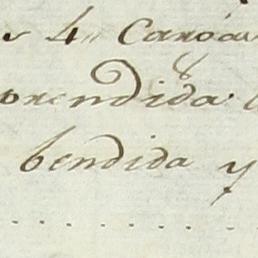 s 4,, Caroa
prendida
bendida y